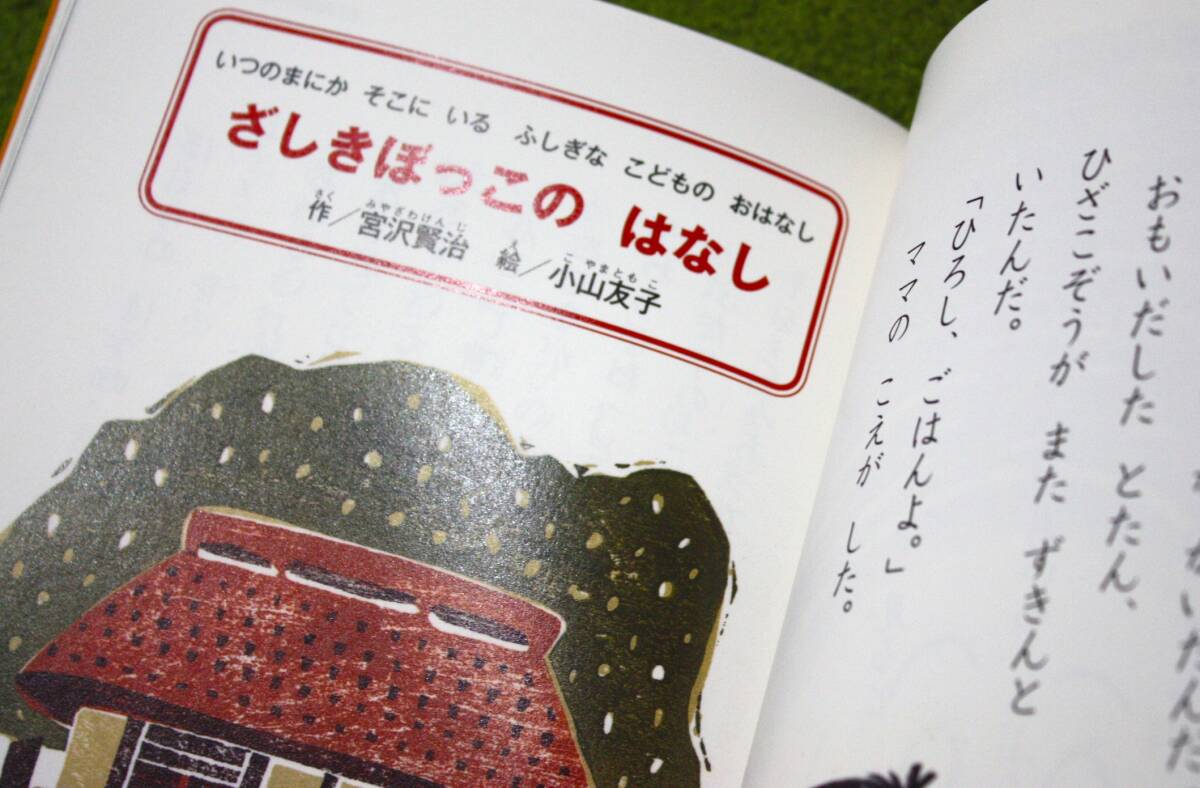 いつのまにか そこに いる ふしぎな こどもの おはなし
ざしきぼっこの はなし
さく みやざわけんじ え こやまともこ
作／宮沢賢治 絵／小山友子
おもいだした とたん、
ひざこぞうが また ずきんと
いたんだ。
「ひろし、ごはんよ。」
ママの こえが した。